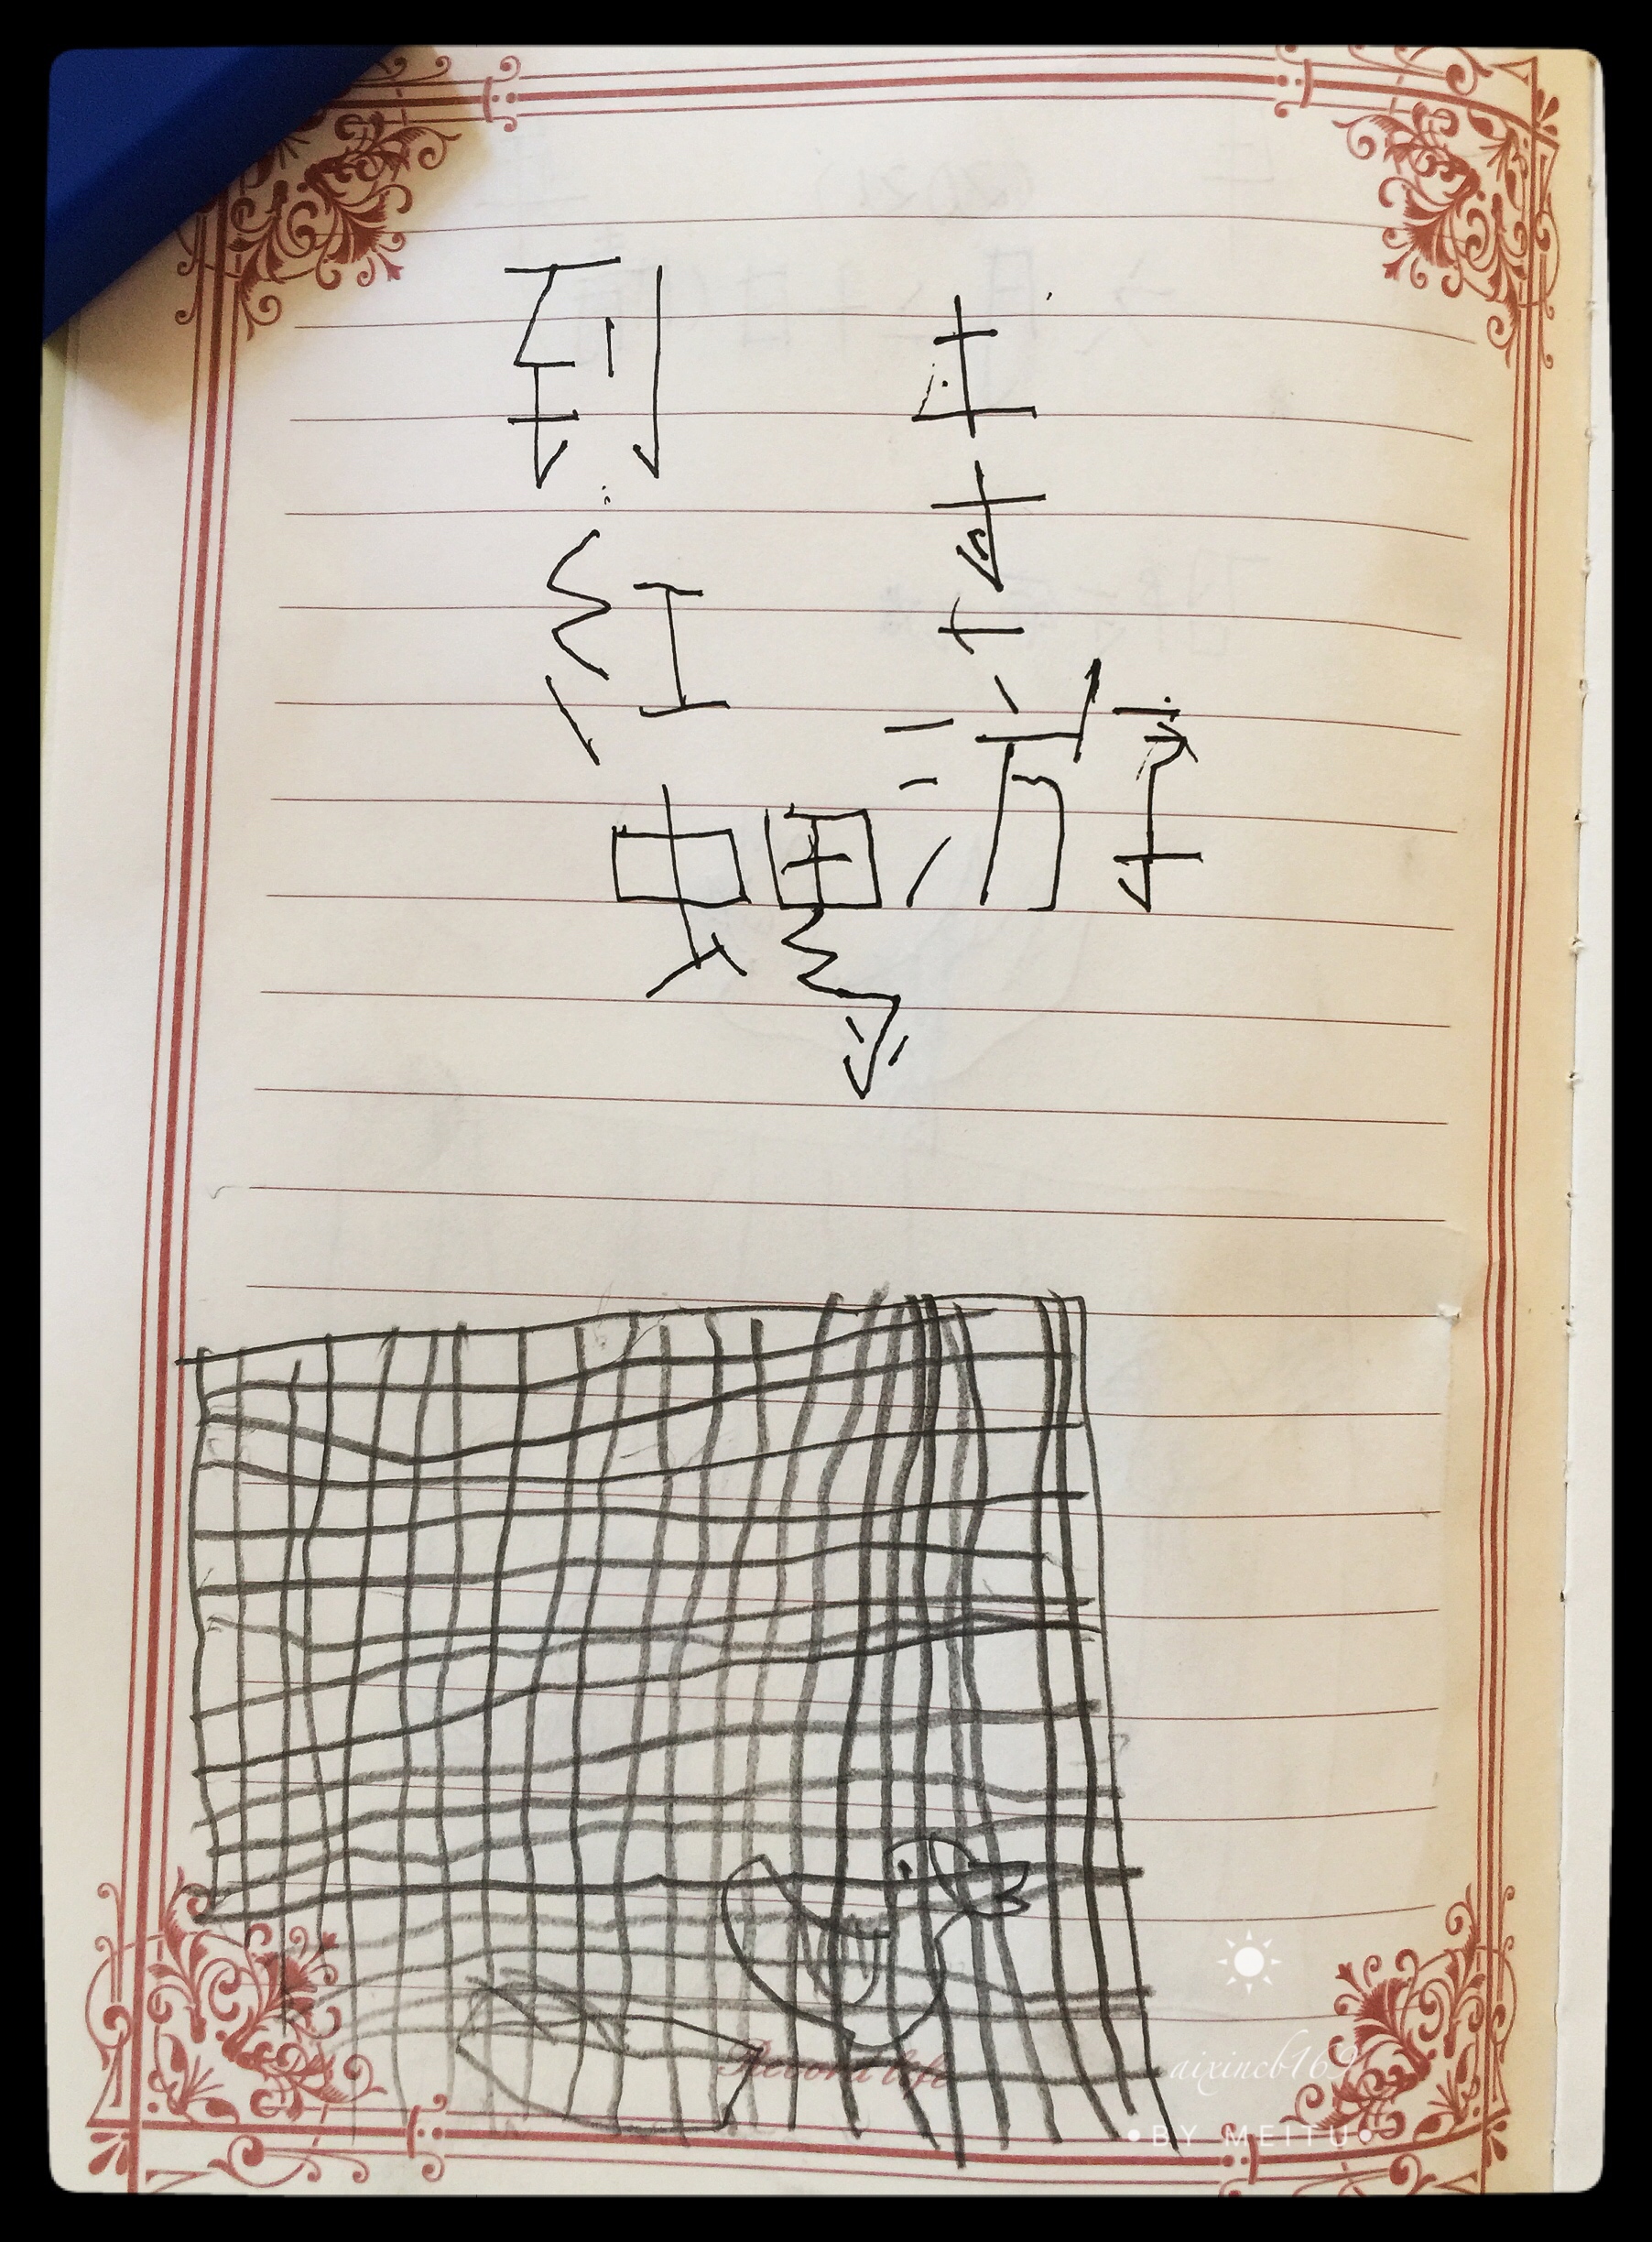 到红螺
寺游
Record life
aixincb169
BY MEITU